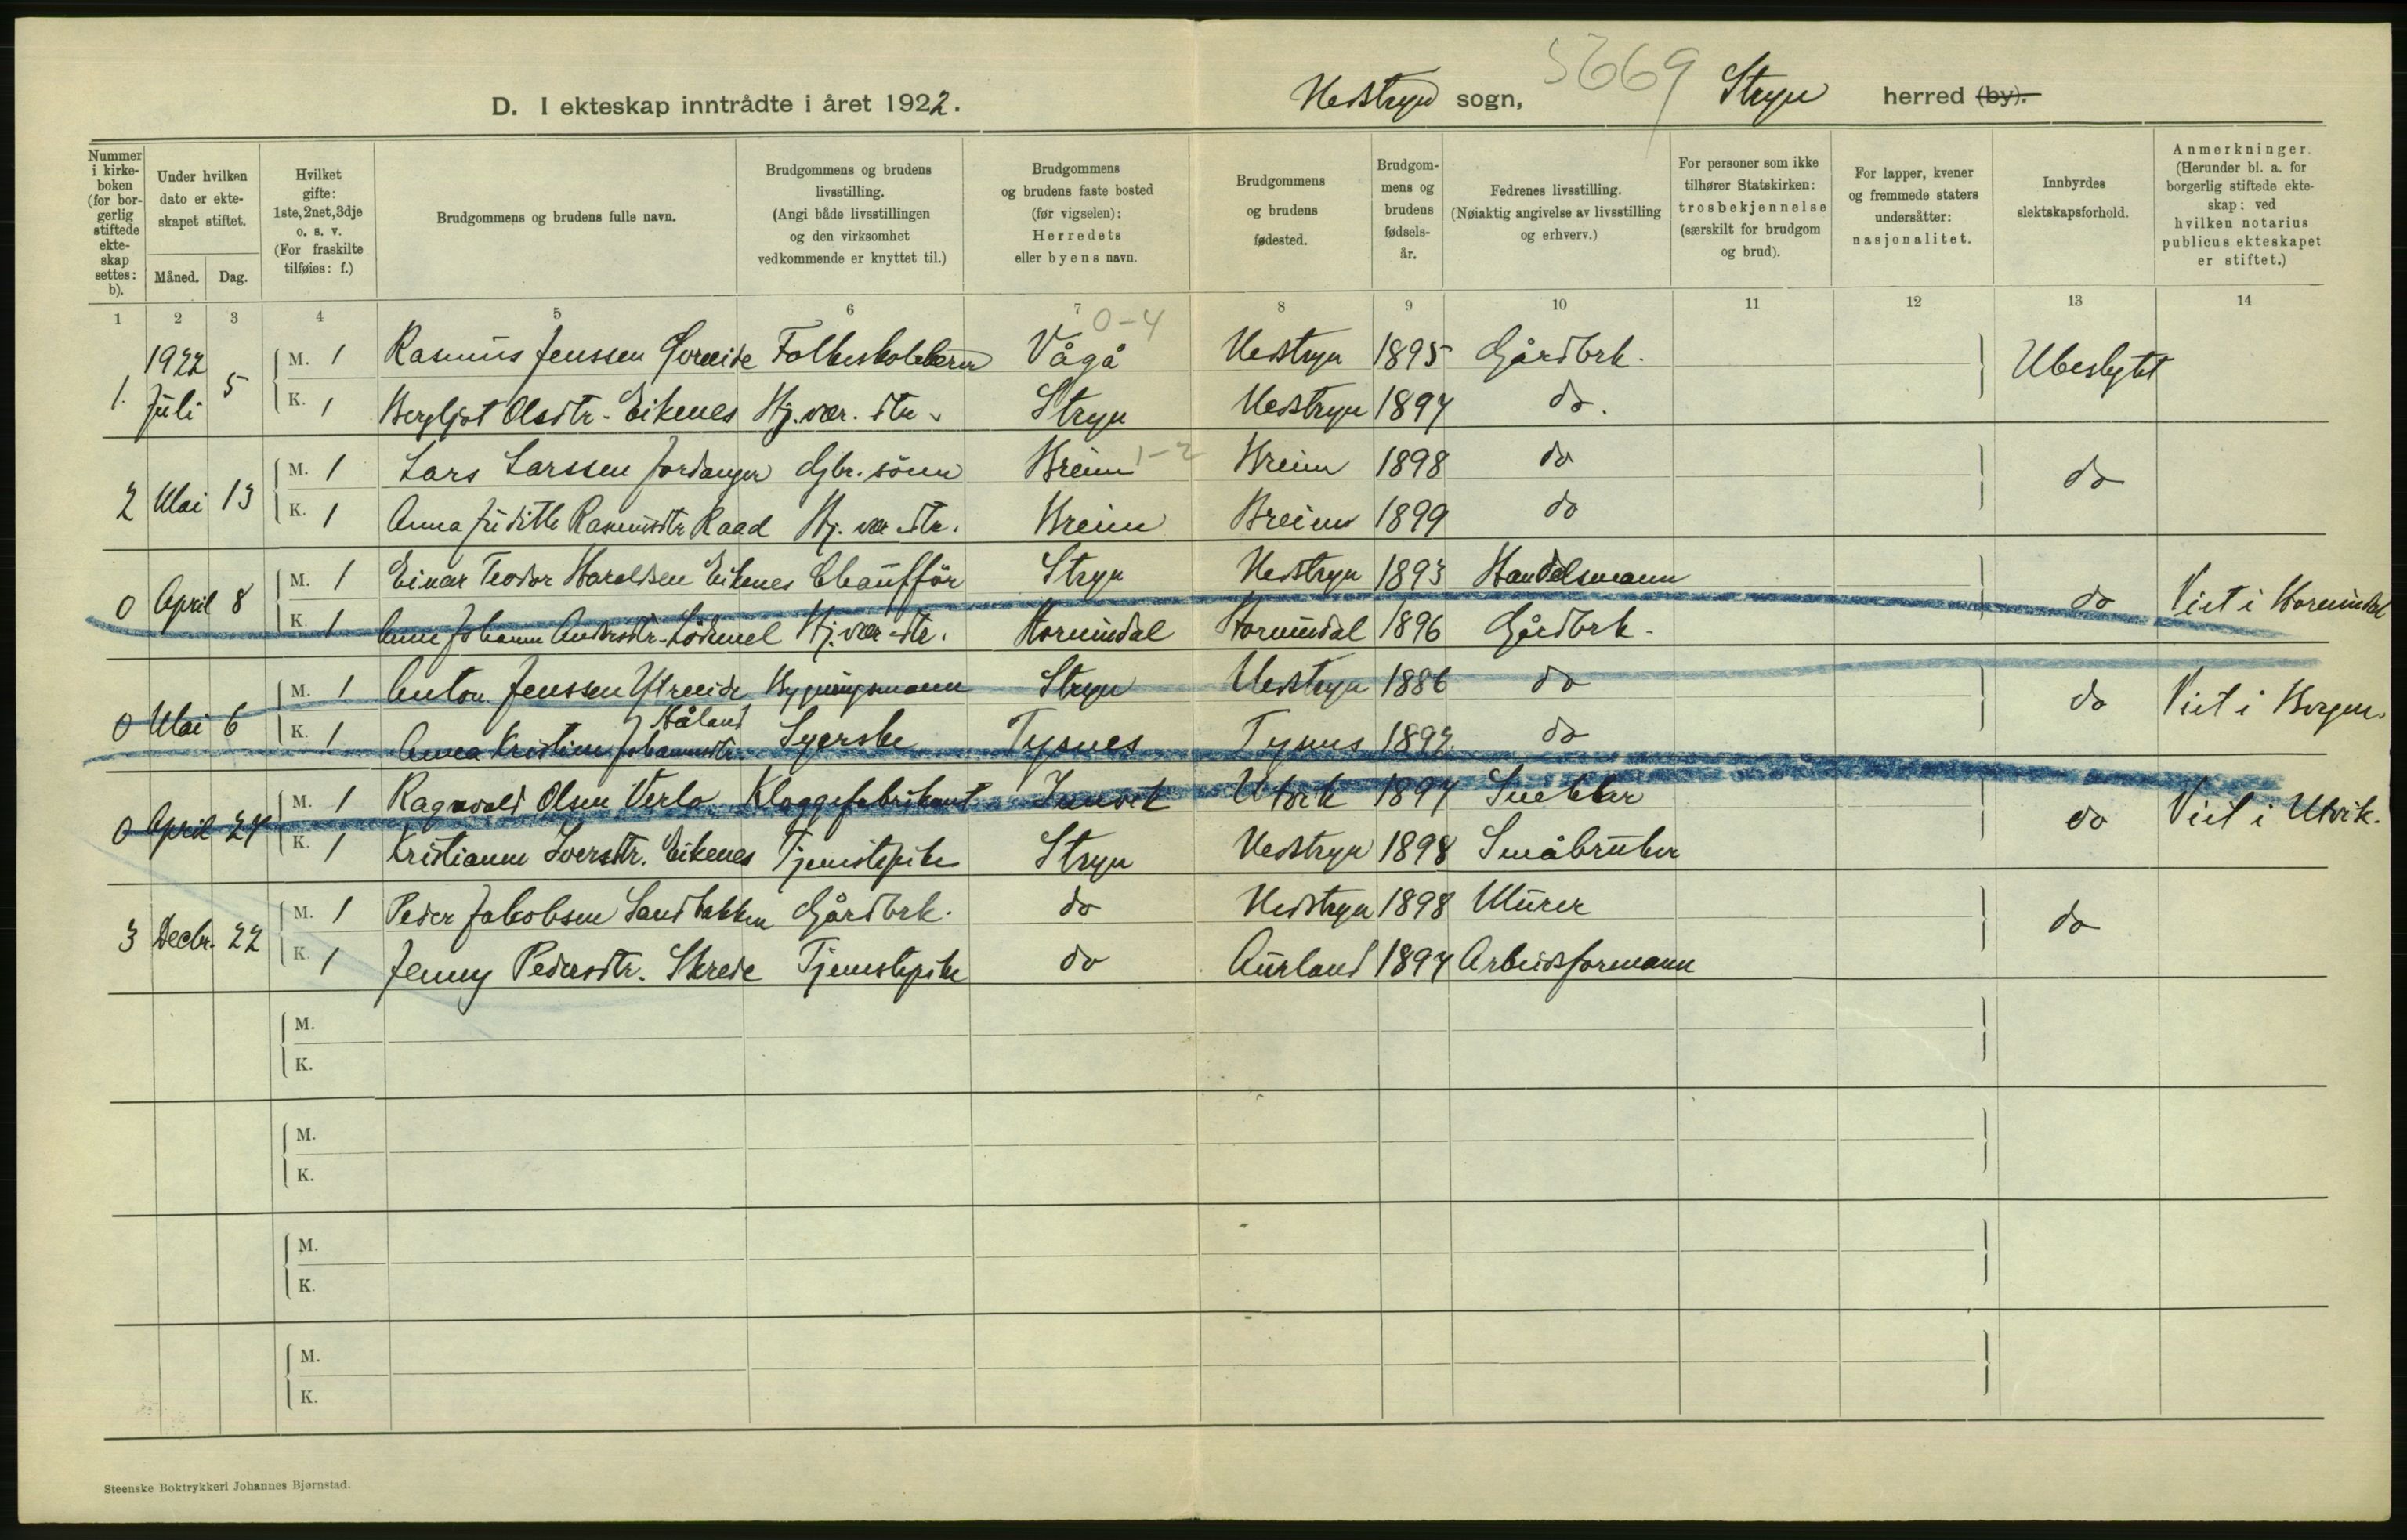 5669
D. I ekteskap inntrådte i året 1922. Nedstryn sogn, Stryn herred (by).
Nummer i kirkeboken (for borgerlig stiftede ekteskap settes: b).
Under hvilken dato er ekteskapet stiftet.
Måned. Dag.
Hvilket gifte: 1ste, 2net, 3dje o. s. v. (For fraskilte tilføies: f.)
Brudgommens og brudens fulle navn.
Brudgommens og brudens livsstilling. (Angi både livsstillingen og den virksomhet vedkommende er knyttet til.)
Brudgommens og brudens faste bosted (før vigselen): Herredets eller byens navn.
Brudgommens og brudens fødested.
Brudgommens og brudens fødselsår.
Fedrenes livsstilling. (Nøiaktig angivelse av livsstilling og erhverv.)
For personer som ikke tilhører Statskirken: trosbekjennelse (særskilt for brudgom og brud).
For lapper, kvener og fremmede staters undersåtter: nasjonalitet.
Innbyrdes slektskapsforhold.
Anmerkninger. (Herunder bl. a. for borgerlig stiftede ekteskap: ved hvilken notarius publicus ekteskapet er stiftet.)
1 2 3 4 5 6 7 8 9 10 11 12 13 14
0-4
1. 1922 Juli 5 M. 1 Rasmus Jenssen Folkeskolelærer Vågå Nedstryn 1895 Gårdbrk. Ubeslegtet
K. 1 Bergljot Olsdtr. Eikenes Hj. vær. dtr. Stryn Nedstryn 1897 do.
2 Mai 13 M. 1 Lars Larssen Jordanger Gbr. sönn Breim 1-2 Breim 1898 do do
K. 1 Anna Judithe Rasmusdtr Raad Hj. vær dtr. Breim Breim 1899 do
0 April 8 M. 1 Einar Teodor Haraldsen Eikenes Chaufför Stryn Nedstryn 1893 Handelsmann do Viet i Hornindal
K. 1 Anne Johanne Andersdtr. Lödemel Hj. vær dtr. Hornindal Hornindal 1896 Gårdbrk.
0 Mai 6 M. 1 Anton Jenssen Ytreeide Bygningsmann Stryn Nedstryn 1886 do do Viet i Bergen.
K. 1 Anna Kristine Johannesdtr. Håland Syerske Tysnes Tysnes 1892 do
0 April 27 M. 1 Ragnvald Olsen Verlo Kloggefabrikant Innvik Utvik 1897 Snekker do Viet i Utvik.
K. 1 Kristianne Iversdtr. Eikenes Tjenestepike Stryn Nedstryn 1898 Småbruker
3 Decbr. 22 M. 1 Peder Jakobsen Sandbakken Gårdbrk. do Nedstryn 1898 Murer do
K. 1 Jenny Pedersdtr. Skrede Tjenestepike do Aurland 1897 Arbeidsformann
M.
K.
M.
K.
M.
K.
M.
K.
Steenske Boktrykkeri Johannes Bjørnstad.